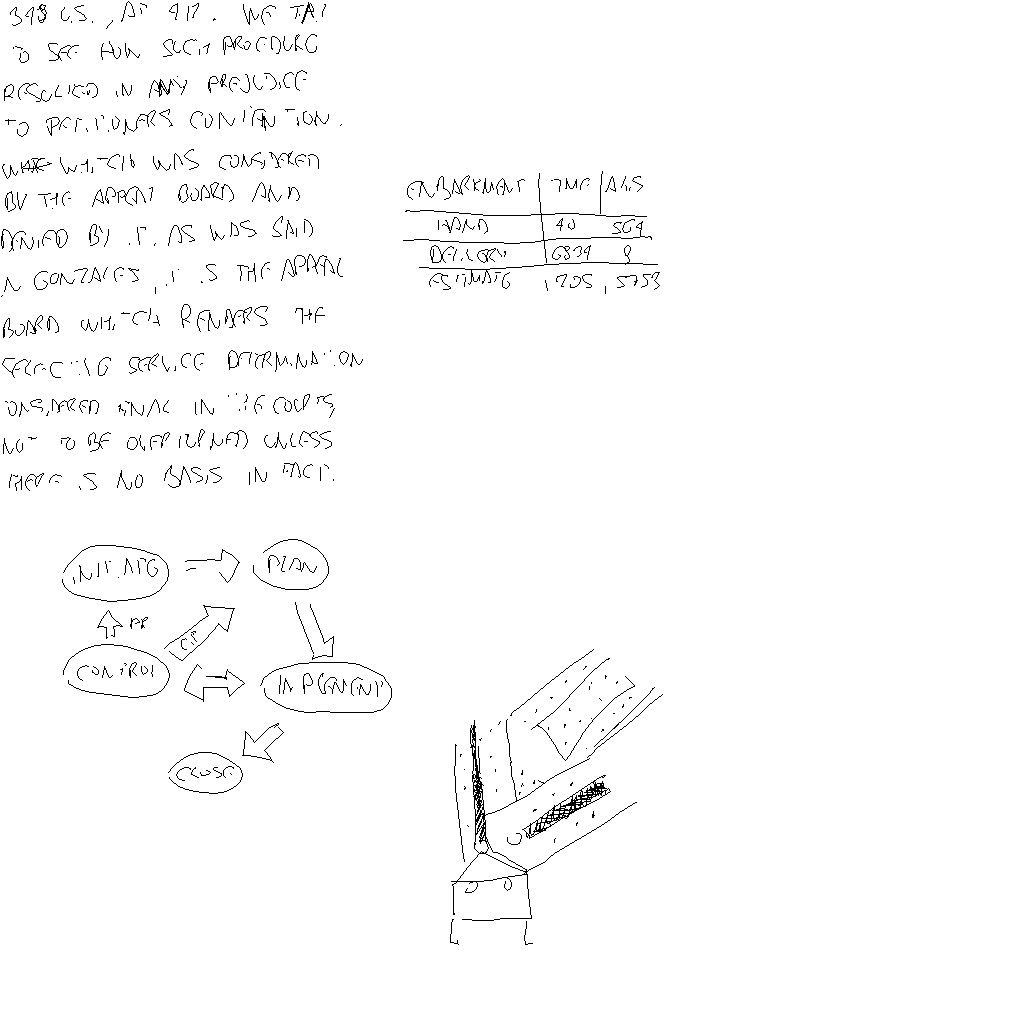 348 U.S., AT 417. WE FAIL
TO SEE HOW SUCH PROCEDURE
RESULTED IN ANY PREJUDICE
TO PETITIONERS CONTENTION.
WHICH WAS CONSIDERED
BY THE APPEAL BOARD AND
DENIED BY IT. AS WAS SAID
IN GONZALES, IT IS THE APPEAL
BOARD WHICH RENDERS THE
SELECTIVE SERVICE DETERMINATION
CONSIDERED FINAL IN THE COURTS,
NOT TO BE OVERTURNED UNLESS
THERE IS NO BASIS IN FACT.
EMBARKMENT TIME
HAND 40 564
DELIVERY 6834 8
ESTIMATE .705 .5753
INITIATE PLAN
CONTROL IMPLEMENT
CLOSE